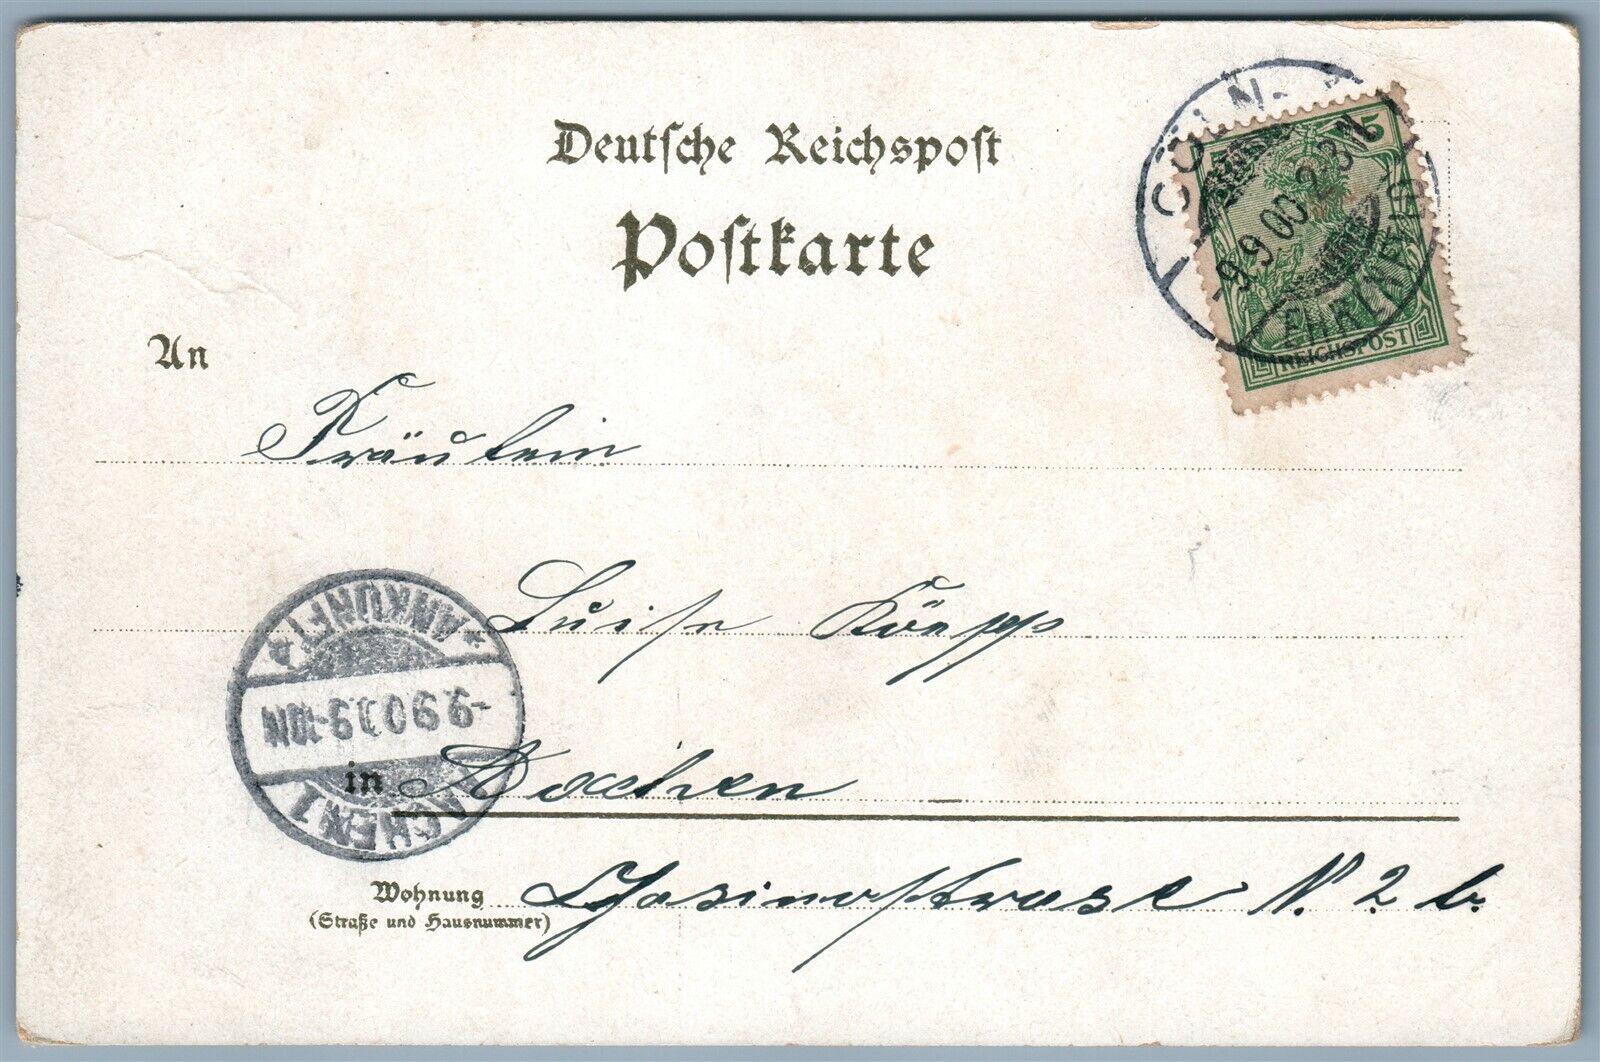 Deutsche Reichspost
Postkarte
CÖLN-
-9.9.00.2-3N
EHRENFELD
5
REICHSPOST
An
Fräulein
Luise Köepp
ANKUNFT
-9.9.00.9-10N
AACHEN 1
in Aachen
Wohnung Casinostrasse N. 2 b.
(Straße und Hausnummer)